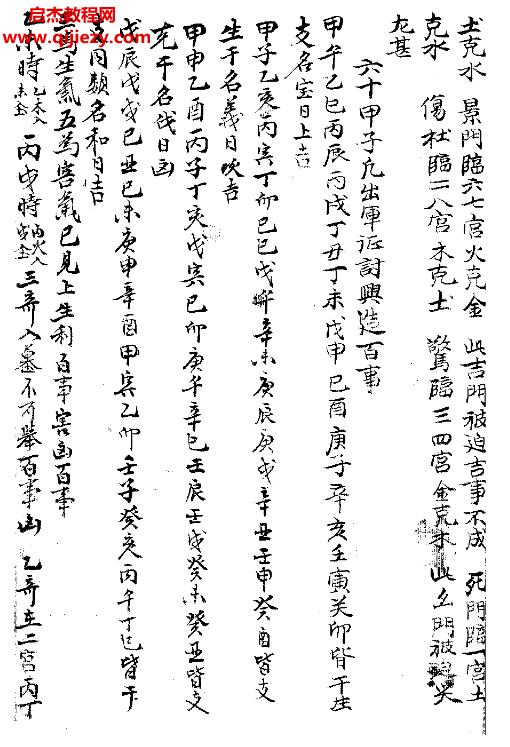 启杰教程网
www.qijiezy.com
土克水 景門臨六七宮火克金 此吉門被迫吉事不成 死門臨一宮土
克水 傷杜臨二八宮木克土 驚臨三四宮金克木 此凶門被迫災
尤甚
六十甲子凡出軍征討興造百事
甲午乙巳丙辰丙戌丁丑丁未戊申己酉庚子辛亥壬寅癸卯皆干生
支名宝日上吉
甲子乙亥丙寅丁卯己巳戊午辛未庚辰庚戌辛丑壬申癸酉皆支
生干名義日次吉
甲申乙酉丙子丁亥戊寅己卯庚午辛巳壬辰壬戌癸未癸丑皆支
克干名伐日凶
戊辰戊戌己丑己未庚申辛酉甲寅乙卯壬子癸亥丙午丁巳皆干
支同類名和日吉
三為生氣五為害氣已見上生利百事害凶百事
乙未時乙木入未金 丙戌時丙火入戌金 三奇入墓不可舉百事凶 乙奇在二宮丙丁